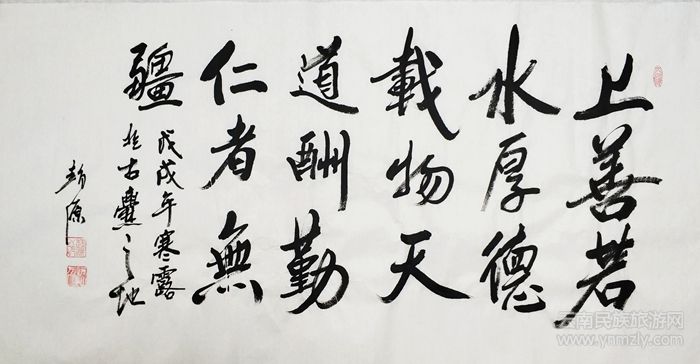 上善若
水厚德
載物天
道酬勤
仁者無
疆
戊戌年寒露
於古爨之地
云南民族旅游网
www.ynmzly.com